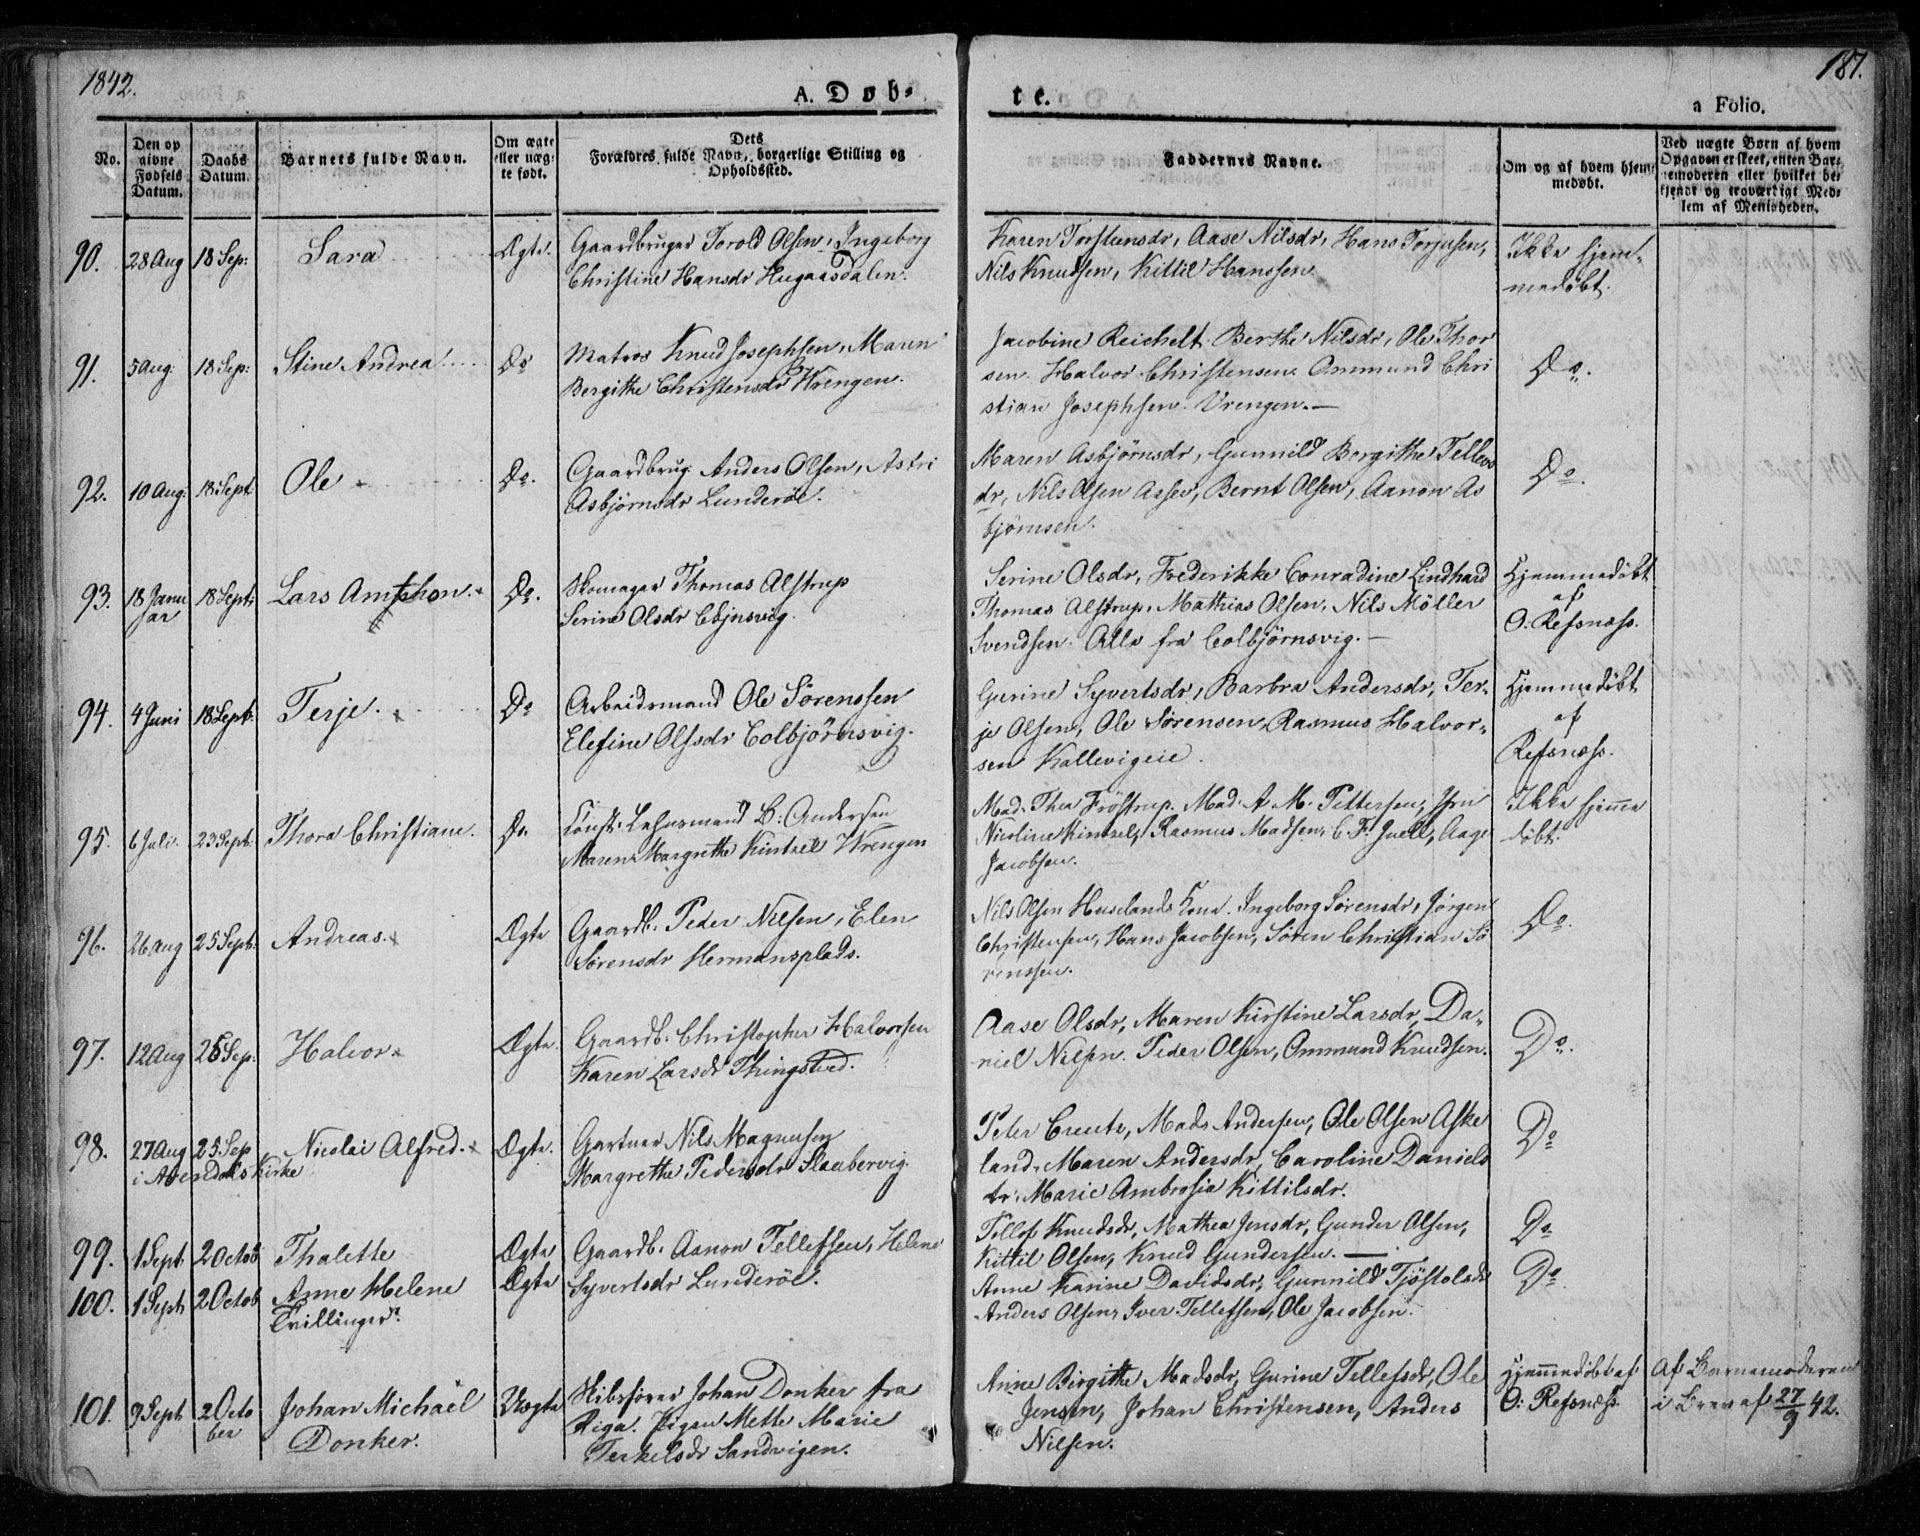 1842.
187.
A. Døb-
te.
a Folio.
No.
Den op
givne
Fødsels
Datum.
Daabs
Datum.
Barnets fulde Navn.
Om ægte
eller uæg-
te født.
Dets
Forældres fulde Navn, borgerlige Stilling og
Opholdssted.
Faddernes Navne.
Om og af hvem hjem
medøbt.
Ved uægte Børn af hvem
Opgaven er skeet, enten Bar-
nemoderen eller hvilket be-
kjendt og troværdigt Med-
lem af Menigheden.
90. 28 Aug 18 Sep: Sara Ægte.
Gaardbruger Torold Olsen, Ingeborg
Christine Hansdr Hugaasdalen.
Karen Torstensdr, Aase Nilsdr, Hans Torjusen,
Nils Knudsen, Kittil Hanssen
Ikke hjem-
medøbt.
91. 5 Aug. 18 Sep: Stine Andrea Do
Matros Knud Josephsen, Maren
Bergithe Christensdr Wrengen.
Jacobine Reichelt. Berthe Nilsdr, Ole Thor
sen. Halvor Christensen. Ommund Chri
stian Josephsen. Vrengen.—
Do.
92. 10 Aug. 18 Sept. Ole Do.
Gaardbrug. Anders Olsen, Astri
Asbjørnsdr Lunderöe.
Maren Asbjørnsdr, Gunnild Borgithe Tellevs
dr, Nils Olsen Asser, Bernt Olsen, Aanon As
bjørnsen.
Do.
93. 18 Janu
ar 18 Sept: Lars Amphon. Do.
Skomager Thomas Alstrup
Serine Olsdr Cbjnsvig.
Serine Olsdr, Frederikke Conradine Lindhard
Thomas Alstrup, Mathias Olsen, Nils Möller
Svendsen. Alle fra Colbjörnsvig.—
Hjemmedøbt
af
O: Refsnæss.
94. 4 Juni 18 Sept. Terje. Do
Arbeidsmand Ole Sörenssen
Elefine Olsdr Colbjörnsvig.
Gurine Syvertsdr, Barbra Andersdr, Ter-
je Olsen, Ole Sörensen, Rasmus Halvor-
sen Kallevigeie.
Hjemmedøbt
af
Refsnæss.
95. 6 Juli. 23 Sept. Thora Christiane. Do
Const. Lehnsmand B: Andersen
Maren Margrethe Kintzel Wrengen
Mad. Thea Fröstrup. Mad. A. M. Pettersen, Jfru
Nicoline Kintzel, Rasmus Madsen, C. F. Juell, Aage
Jacobsen.
Ikke hjemme
døbt.
96. 26 Aug 25 Sept: Andreas. Ægte
Gaardb. Peder Nilsen, Elen
Sörensdr Hermansplads.
Nils Olsen Huselands Kone. Ingeborg Sörensdr, Jörgen
Christensen, Hans Jacobsen, Sören Christian Sö
renssen.
Do.
97. 12 Aug 25 Sep: Halvor Ægte.
Gaardb. Christopher Halvorsen
Karen Larsdr Thingstved.
Aase Olsdr, Maren Kirstine Larsdr, Da-
niel Nilsen. Peder Olsen, Ommund Knudsen.
Do.
98. 27 Aug 25. Sep Nicolai Alfred. Ægte.
i Arendals Kirke
Gartner Nils Magnusen
Margrethe Pedersdr Slaubervig.
Peter Creutz, Mads Andersen, Ole Olsen Aske
land, Maren Andersdr, Caroline Daniels
dr. Marie Ambrosia Kittilsdr.
Do
99. 1 Sept. 2 Octob Thalette Ægte
Gaardb. Aanon Tellefsen, Helene
Tellef Knudsdr, Mathea Jensdr, Gunder Olsen,
Kittil Olsen, Knud Gundersen.—
Do
100. 1 Sept 2 Octob Anne Helene Ægte
Tvillinger.
Syvertsdr Lunderöe.
Anne Karine Davidsdr, Gunnild Tjöstolsdr
Anders Olsen, Iver Tellefsen, Ole Jacobsen.
Do
101. 9 Sept 2 Octo
ber Johan Michaël
Donker. Uægte
Skibsförer Johan Donker fra
Riga. Pigen Mette Marie
Terkelsdr Sandvigen.
Anne Birgithe Madsdr, Gurine Tellefsdr, Ole
Jensen, Johan Christensen, Anders
Nilsen.
Hjemmedöbt af
O: Refsnæss.
Af Barnemoderen
i Brev af 27/9 42.